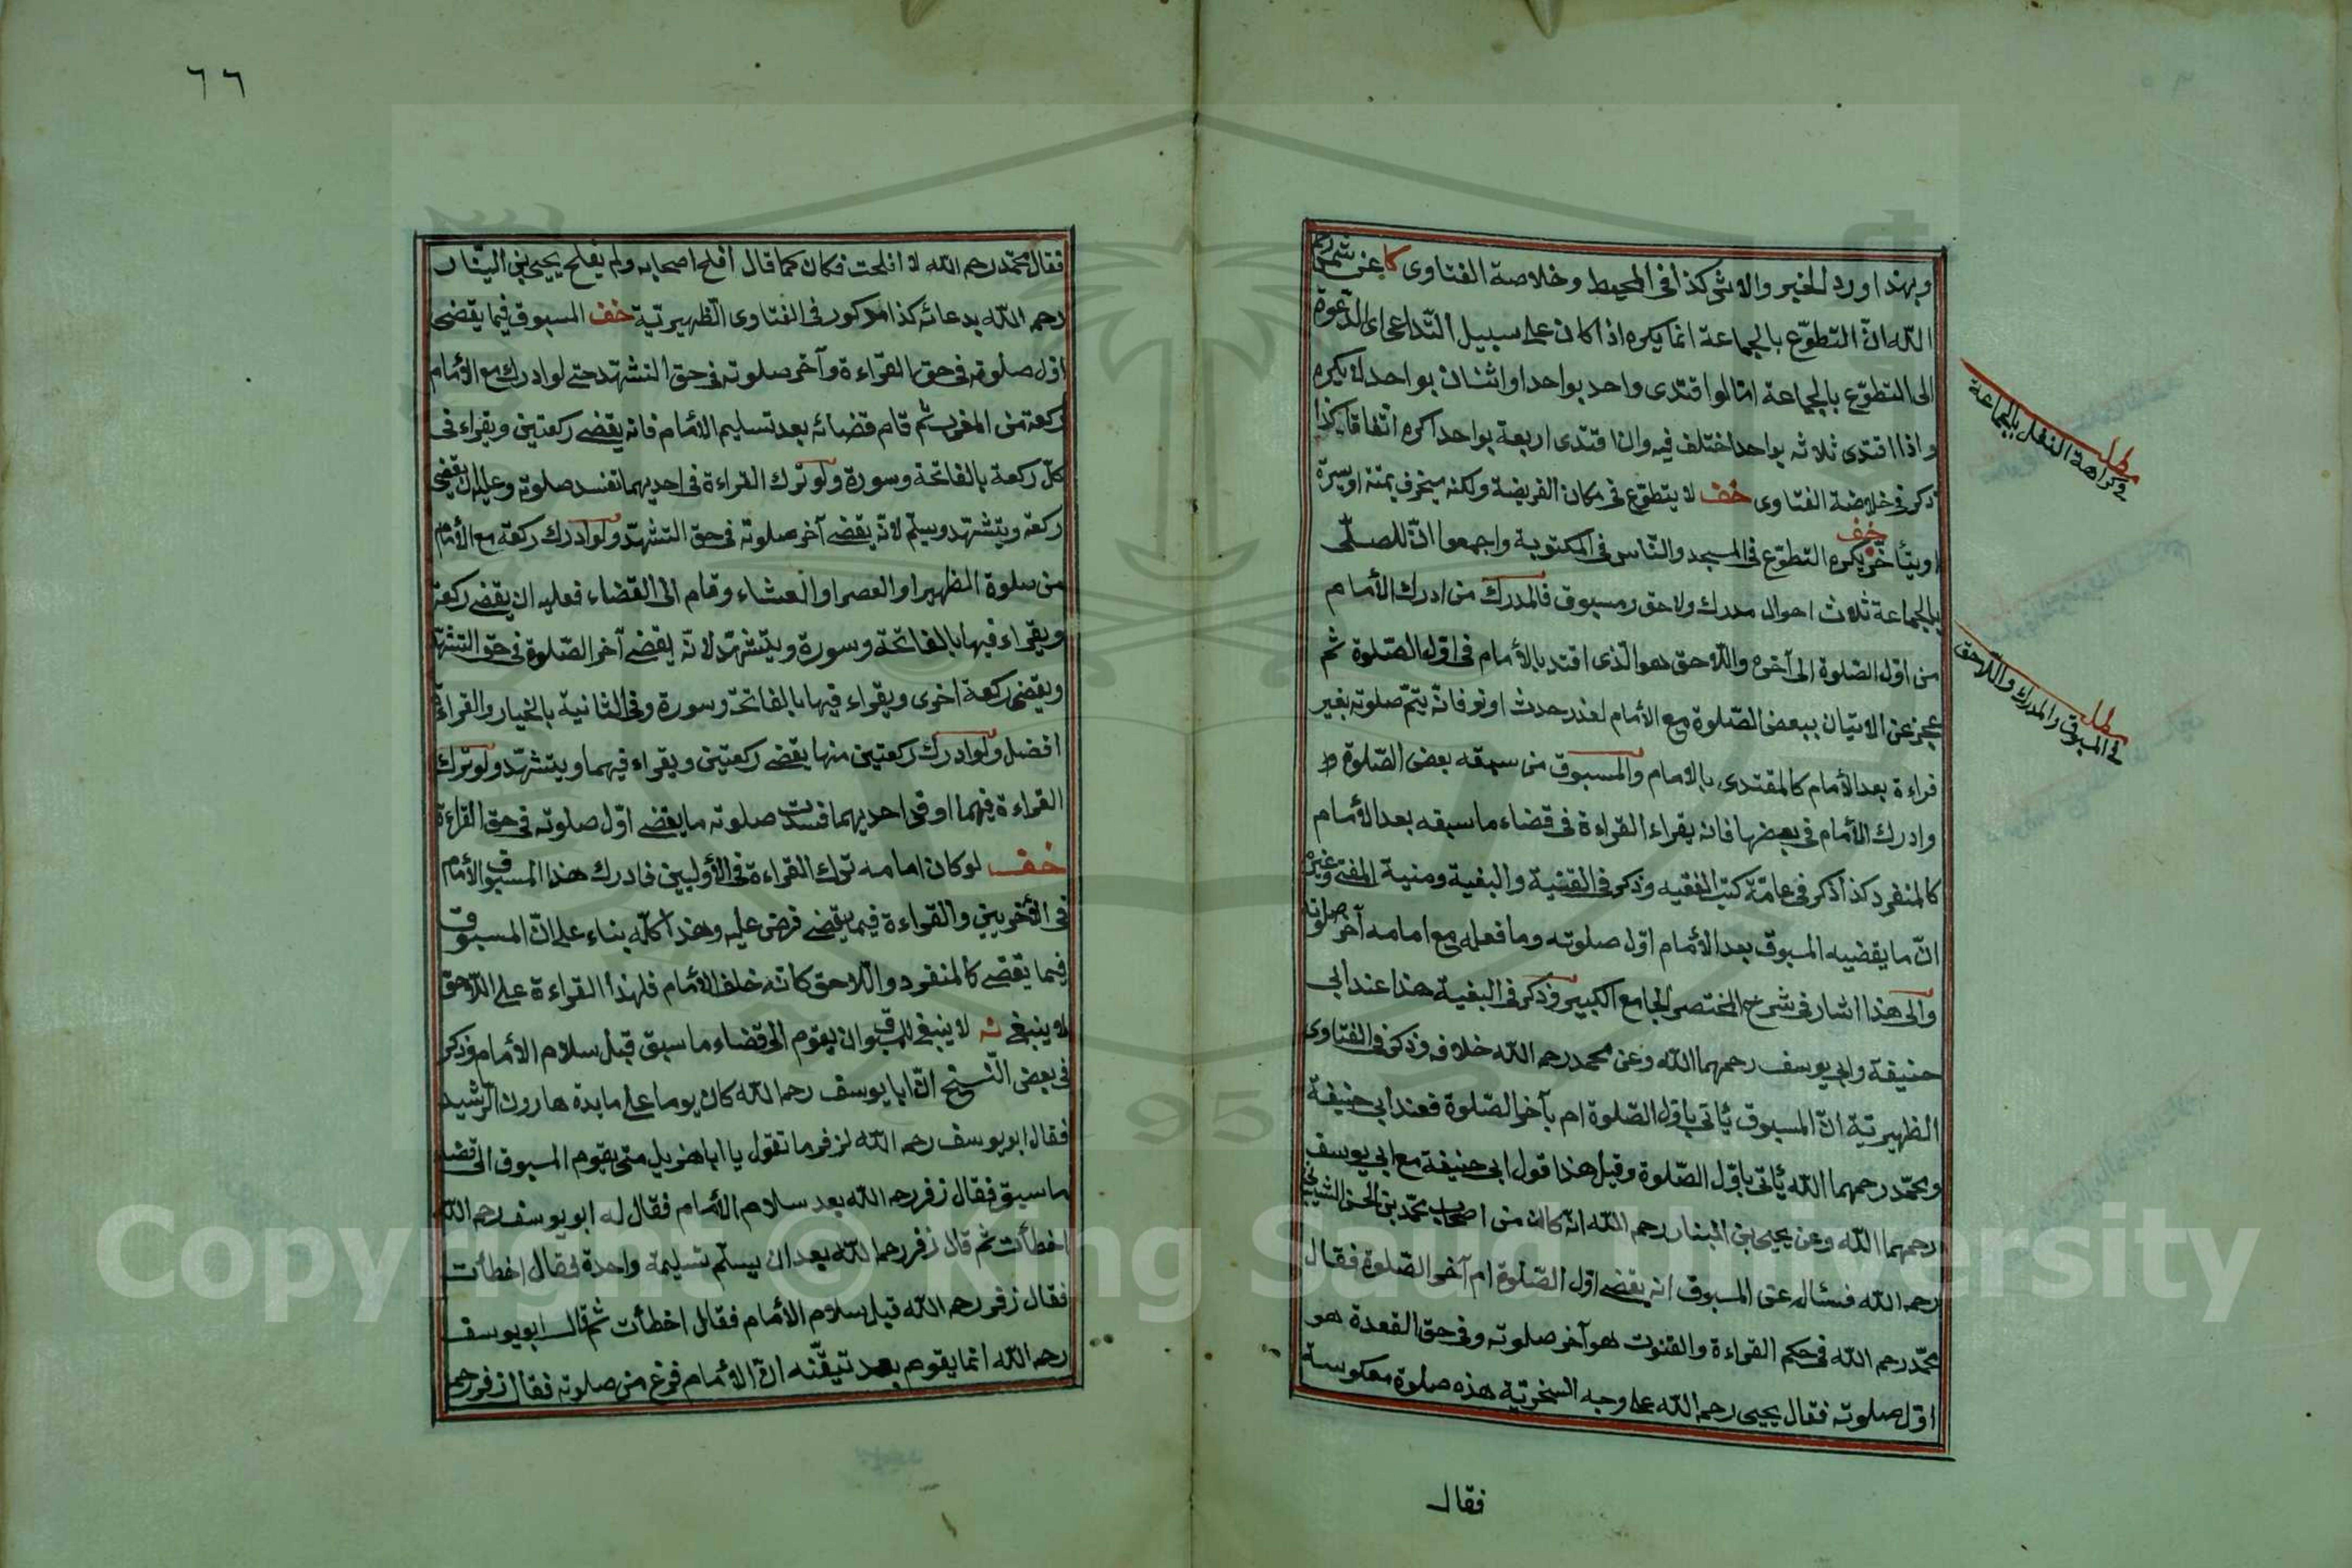 وبهذا ورد الخبر والاثر كذا فى المحيط وخلاصة الفتاوى كا عن شمس
الله انّ التطوّع بالجماعة انما يكره اذا كان على سبيل التّداعى اى الدّعوة
الى التطوّع بالجماعة امّا لو اقتدى واحد بواحد او اثنان بواحد لا يكره
واذا اقتدى ثلاثه بواحد اختلف فيه وان اقتدى اربعة بواحد اكره اتّفاقا كذا
ذكر فى خلاصة الفتاوى خف لا يتطوّع فى مكان الفريضة ولكنه ينحرف يمنة او يسرة
او يتأخّر خف يكره التطوّع فى المسجد والنّاس فى المكتوبة واجمعوا انّ للمصلّى
بالجماعة ثلاث احوال مدرك ولاحق ومسبوق فالمدرك من ادرك الأمام
من اوّل الصّلوة الى آخره واللّاحق هو الّذى اقتد بالأمام فى اوّل الصّلوة ثم
عجز عن الاتيان ببعض الصّلوة مع الأمام لعذر حدث او نوم فانّه يتمّ صلوته بغير
قراءة بعد الأمام كالمقتدى بالامام والمسبوق من سبقه بعض الصّلوة
وادرك الأمام فى بعضها فانه يقراء القراءة فى قضاء ما سبقه بعد الأمام
كالمنفرد كذا ذكر فى عامّة كتب الفقيه وذكر فى القنية والبغية ومنية المفتى وغيره
انّ ما يقضيه المسبوق بعد الأمام اوّل صلوته وما فعله مع امامه آخر صلوته
والى هذا اشار فى شرح المختصر الجامع الكبير وذكر فى البغية هذا عند ابى
حنيفة وابى يوسف رحمهما اللّه وعن محمد رحمه اللّه خلافه وذكر فى الفتاوى
الظهيريّة انّ المسبوق يأتى باوّل الصّلوة ام بآخر الصّلوة فعند ابى حنيفة
ومحمّد رحمهما اللّه يأتى باوّل الصّلوة وقيل هذا قول ابى حنيفة مع ابى يوسف
رحمهما اللّه وعن يحيى بن البنار رحمه اللّه انه كان من اصحاب محمّد بن الحسن الشيبانى
رحمه اللّه فسئاله عن المسبوق انه يقضى اوّل الصّلوة ام آخر الصّلوة فقال
محمّد رحمه اللّه فى حكم القراءة والقنوت هو آخر صلوته وفى حق القعدة هو
اوّل صلوته فقال يحيى رحمه اللّه على وجه السخريّة هذه صلوة معكوسة
فقال
مطلب
فى كراهة النفل بالجماعة
مطلب
فى المسبوق والمدرك واللّاحق
٦٦
فقال محمّد رحمه اللّه لا افلحت فكان كما قال افلح اصحابه ولم يفلح يحيى بن البنار
رحمه اللّه بدعائه كذا مذكور فى الفتاوى الظهيريّة خف المسبوق فيما يقضى
اوّل صلوته فى حق القراءة وآخر صلوته فى حق التشهّد حتى لو ادرك مع الأمام
ركعة من المغرب ثم قام قضائه بعد تسليم الأمام فانه يقضى ركعتين ويقراء فى
كلّ ركعة بالفاتحة وسورة ولو ترك القراءة فى احديهما تفسد صلوته وعليه ان يقضى
ركعة ويتشهّد ويسلّم لانّه يقضى آخر صلوته فى حق التشهّد ولو ادرك ركعة مع الأمام
من صلوة الظهر او العصر او العشاء وقام الى القضاء فعليه ان يقضى ركعة
ويقراء فيها بالفاتحة وسورة ويتشهّد لانّه يقضى آخر الصّلوة فى حق التشهّد
ويقضى ركعة اخرى ويقراء فيها بالفاتحة وسورة وفى الثانية بالخيار والقراءة
افضل ولو ادرك ركعتين منها يقضى ركعتين ويقراء فيهما ويتشهّد ولو ترك
القراءة فيهما او فى احديهما فسدت صلوته ما يقضى اوّل صلوته فى حق القراءة
خف لو كان امامه ترك القراءة فى الأوليين فادرك هذا المسبوق الأمام
فى الأخريين والقراءة فيما يقضى فرض عليه وهذا كلّه بناء على انّ المسبوق
فيما يقضى كالمنفرد واللّاحق كانّه خلف الأمام فلهذا القراءة على اللّاحق
لا ينبغى ته لا ينبغى للمسبوق ان يقوم الى قضاء ما سبق قبل سلام الأمام وذكر
فى بعض النّسخ انّ ابا يوسف رحمه اللّه كان يوما على مايدة هارون الرّشيد
فقال ابو يوسف رحمه اللّه لزفر ما تقول يا ابا هزيل متى يقوم المسبوق الى قضاء
ما سبق فقال زفر رحمه اللّه بعد سلام الأمام فقال له ابو يوسف رحمه اللّه
اخطأت ثم قال زفر رحمه اللّه بعد ان يسلّم تسليمة واحدة فقال اخطأت
فقال زفر رحمه اللّه قبل سلام الأمام فقال اخطأت ثم قال ابو يوسف
رحمه اللّه انما يقوم بعد تيقّنه انّ الأمام فرغ من صلوته فقال زفر رحمه
Copyright © King Saud University